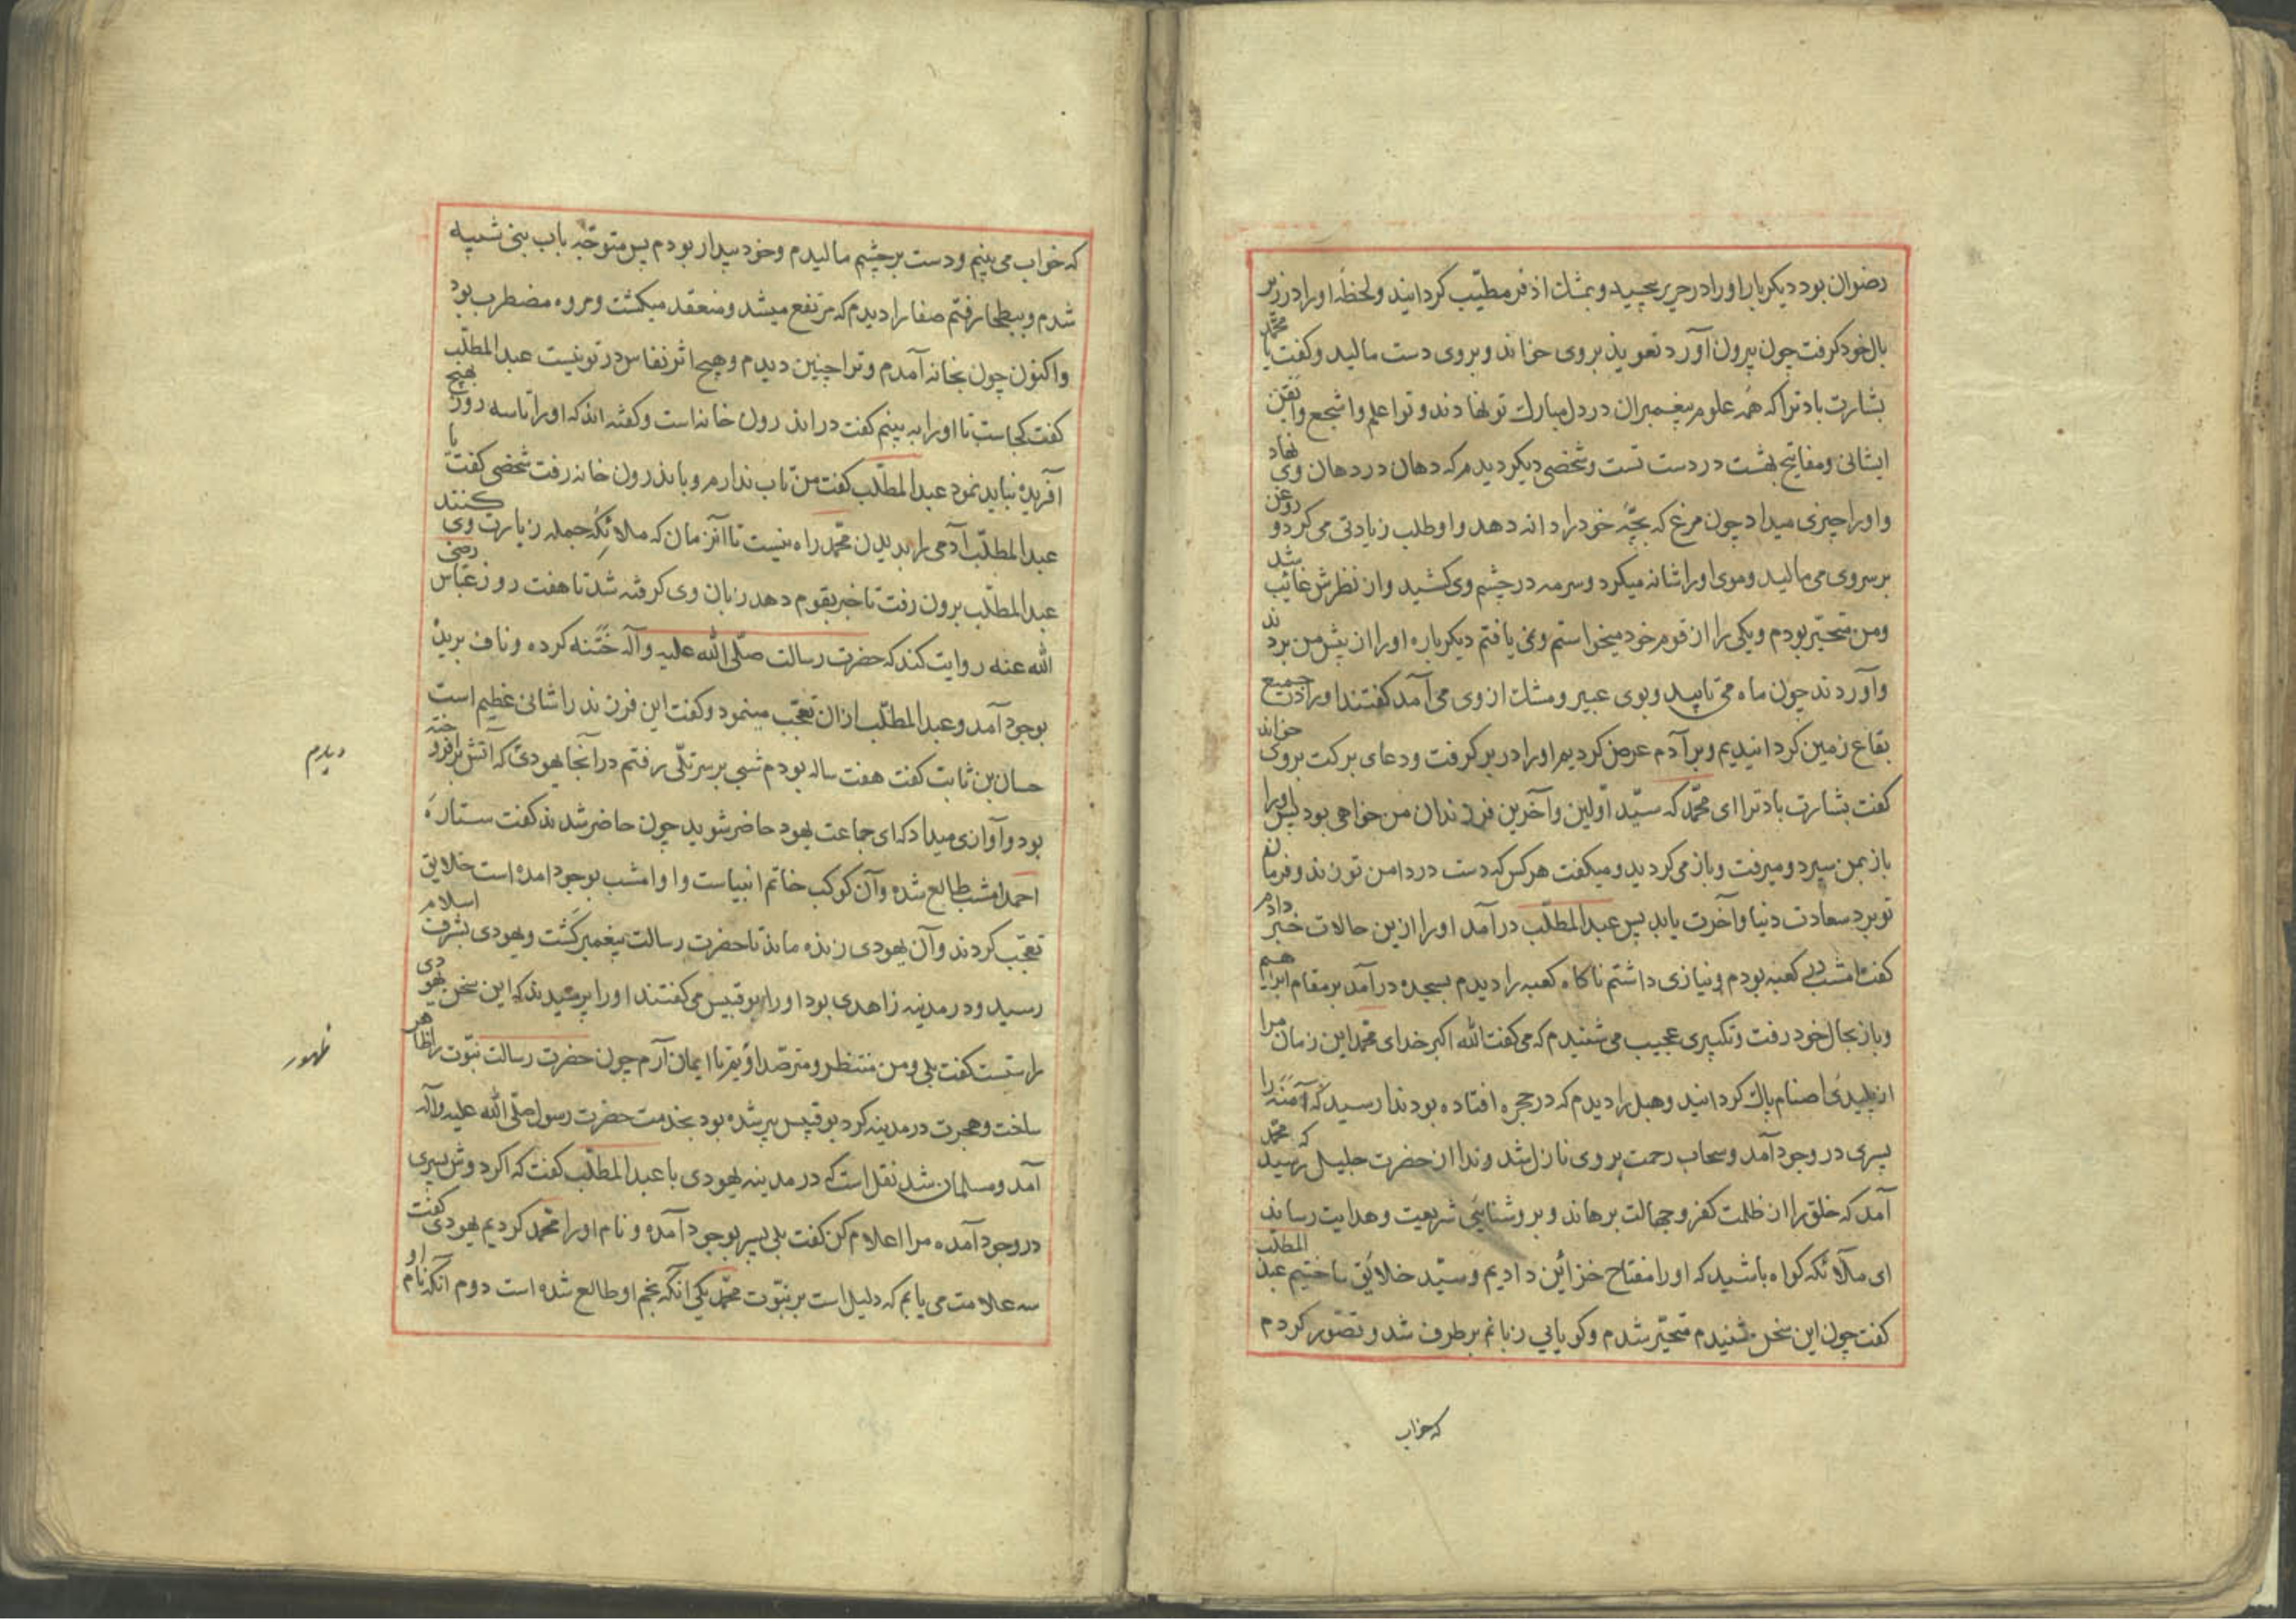 رضوان بود دیکر بار اورا در حریر پیچید و بمشک اذفر مطیّب کردانیند و لحظه اورا در زیر
بال خود کرفت چون بیرون آورد تعویذ بروی خواند و بروی دست مالید و کفت یا محمّد
بشارت باد ترا که همه علوم پیغمبران در دل مبارک تو نهادند و تو اعلم و اشجع و اتقن
ایشانی و مفاتیح بهشت در دست تست و شخصی دیکر دیدم که دهان در دهان وی نهاد
و اورا چیزی میداد چون مرغ که بچّه خود را دانه دهد و او طلب زیادتی می کرد و روغن
بر سر وی می مالید و موی اورا شانه میکرد و سرمه در چشم وی کشید و از نظرش غائب شد
و من متحیّر بودم و یکی را از قوم خود میخواستم و نمی یافتم دیکر باره اورا از پیش من بردند
و آوردند چون ماه می تابید و بوی عبیر و مشک از وی می آمد کفتند اورا در جمیع
بقاع زمین کردانیدیم و بر آدم عرض کردیم اورا در بر کرفت و دعای برکت بروی خواند
کفت بشارت باد ترا ای محمّد که سیّد اوّلین و آخرین فرزندان من خواهی بود پس اورا
باز بمن سپرد و میرفت و باز می کردید و میکفت هر کس که دست در دامن تو زند و فرمان
تو برد سعادت دنیا و آخرت یابد پس عبدالمطلّب در آمد اورا ازین حالات خبر دادم
کفت امشب در کعبه بودم و نیازی داشتم ناکاه کعبه را دیدم بسجده در آمد بر مقام ابراهیم
و باز بحال خود رفت و تکبیری عجیب می شنیدم که می کفت الله اکبر خدای محمّد این زمان مرا
از پلیدئ اصنام پاک کردانید و هبل را دیدم که در حجره افتاده بود ندا رسید که آمنه را
پسری در وجود آمد و سحاب رحمت بروی نازل شد و ندا از حضرت جلیل رسید که محمّد
آمد که خلق را از ظلمت کفر و جهالت برهاند و بروشنایی شریعت و هدایت رساند
ای ملائکه کواه باشید که اورا مفتاح خزائن دادیم و سیّد خلایق ساختیم عبدالمطلّب
کفت چون این سخن شنیدم متحیّر شدم و کویایی زبانم برطرف شد و تصّور کردم
که خواب
که خواب می بینم و دست بر چشم مالیدم و خود بیدار بودم پس متوجّه باب بنی شیبه
شدم و ببطحا رفتم صفا را دیدم که مرتفع میشد و منعقد میکشت و مروه مضطرب بود
و اکنون چون بخانه آمدم و ترا چنین دیدم و هیچ اثر نفاس در تو نیست عبدالمطلّب
کفت کجاست تا اورا به بینم کفت در اندرون خانه است و کفته اند که اورا تا سه روز بهیچ
آفریده نباید نمود عبدالمطلّب کفت من تاب ندارم و باندرون خانه رفت شخصی کفت یا
عبدالمطلّب آدمی را بدیدن محمّد راه نیست تا آنزمان که ملائکه جمله زیارت وی کنند
عبدالمطلّب برون رفت تا خبر بقوم دهد زبان وی کرفته شد تا هفت روز عبّاس رضی
الله عنه روایت کند که حضرت رسالت صلّی الله علیه و آله ختنه کرده و ناف بریده
بوجود آمد و عبدالمطلّب ازان تعجّب مینمود و کفت این فرزند را شانی عظیم است
حسان بن ثابت کفت هفت ساله بودم شبی بر سر تلّی رفتم در آنجا یهودئ که آتش برافروخته
دیدم
بود و آوازی میداد که ای جماعت یهود حاضر شوید چون حاضر شدند کفت ستارهٔ
احمد امشب طالع شده و آن کوکب خاتم انبیاست و او امشب بوجود امده است خلایق
تعجّب کردند و آن یهودی زنده ماند تا حضرت رسالت پیغمبر کشت و یهودی بشرف اسلام
رسید و در مدینه زاهدی بود اورا بوقبیس می کفتند اورا پرسیدند که این سخن یهودی
راستست کفت بلی و من منتظر و مترصّد اویم تا ایمان آرم چون حضرت رسالت نبّوت را ظاهر
ظهور
ساخت و هجرت در مدینه کرد بوقبیس پیر شده بود بخدمت حضرت رسول صلّی الله علیه و آله
آمد و مسلمان شد نقل است که در مدینه یهودی با عبدالمطلّب کفت که اکر دوش پسری
در وجود آمده مرا اعلام کن کفت بلی پسر بوجود آمده و نام اورا محمّد کردیم یهودی کفت
سه علامت می یابم که دلیل است بر نبّوت محمّد یکی آنکه نجم او طالع شده است دوم آنکه نام او